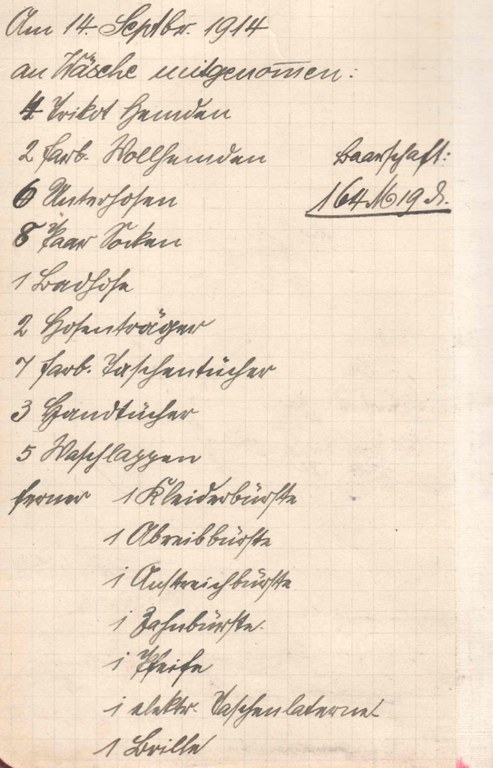 Am 14. Septbr. 1914
an Wäsche mitgenommen:
4 Trikot Hemden
2 farb. Wollhemden
Baarschaft:
6 Unterhosen
164 M 19 d.
8 Paar Socken
1 Badhose
2 Hosenträger
7 farb. Taschentücher
3 Handtücher
5 Waschlappen
ferner 1 Kleiderbürste
1 Abreibbürste
1 Anstreichbürste
1 Zahnbürste.
1 Pfeife
1 elektr. Taschenlaterne
1 Brille